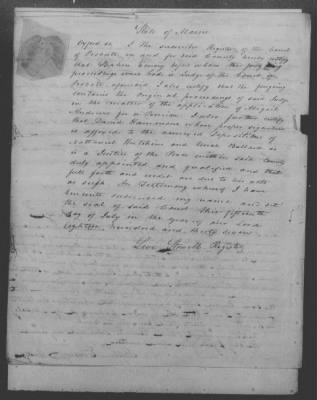 State of Maine
Oxford ss. I the subscriber Register of the Court
of Probate in and for said County hereby certify
that Stephen Emery before whom the foregoing
proceedings were had is Judge of the Court of
Probate aforesaid I also certify that the foregoing
contains the original proceedings of said Judge
in the matter of the application of Abigail
Andrews for a Pension I also further certify
that David Hammons whose proper signature
is affixed to the annexed Depositions of
Nathaniel Hutchins and Ballard
is a Justice of the Peace within said County
duly appointed and qualified and that
full faith and credit are due to his acts
as such. In Testimony whereof I have
hereunto subscribed my name and set
the seal of said Court this fifteenth
day of July in the year of our Lord
eighteen hundred and thirty seven
Levi Stowell Register